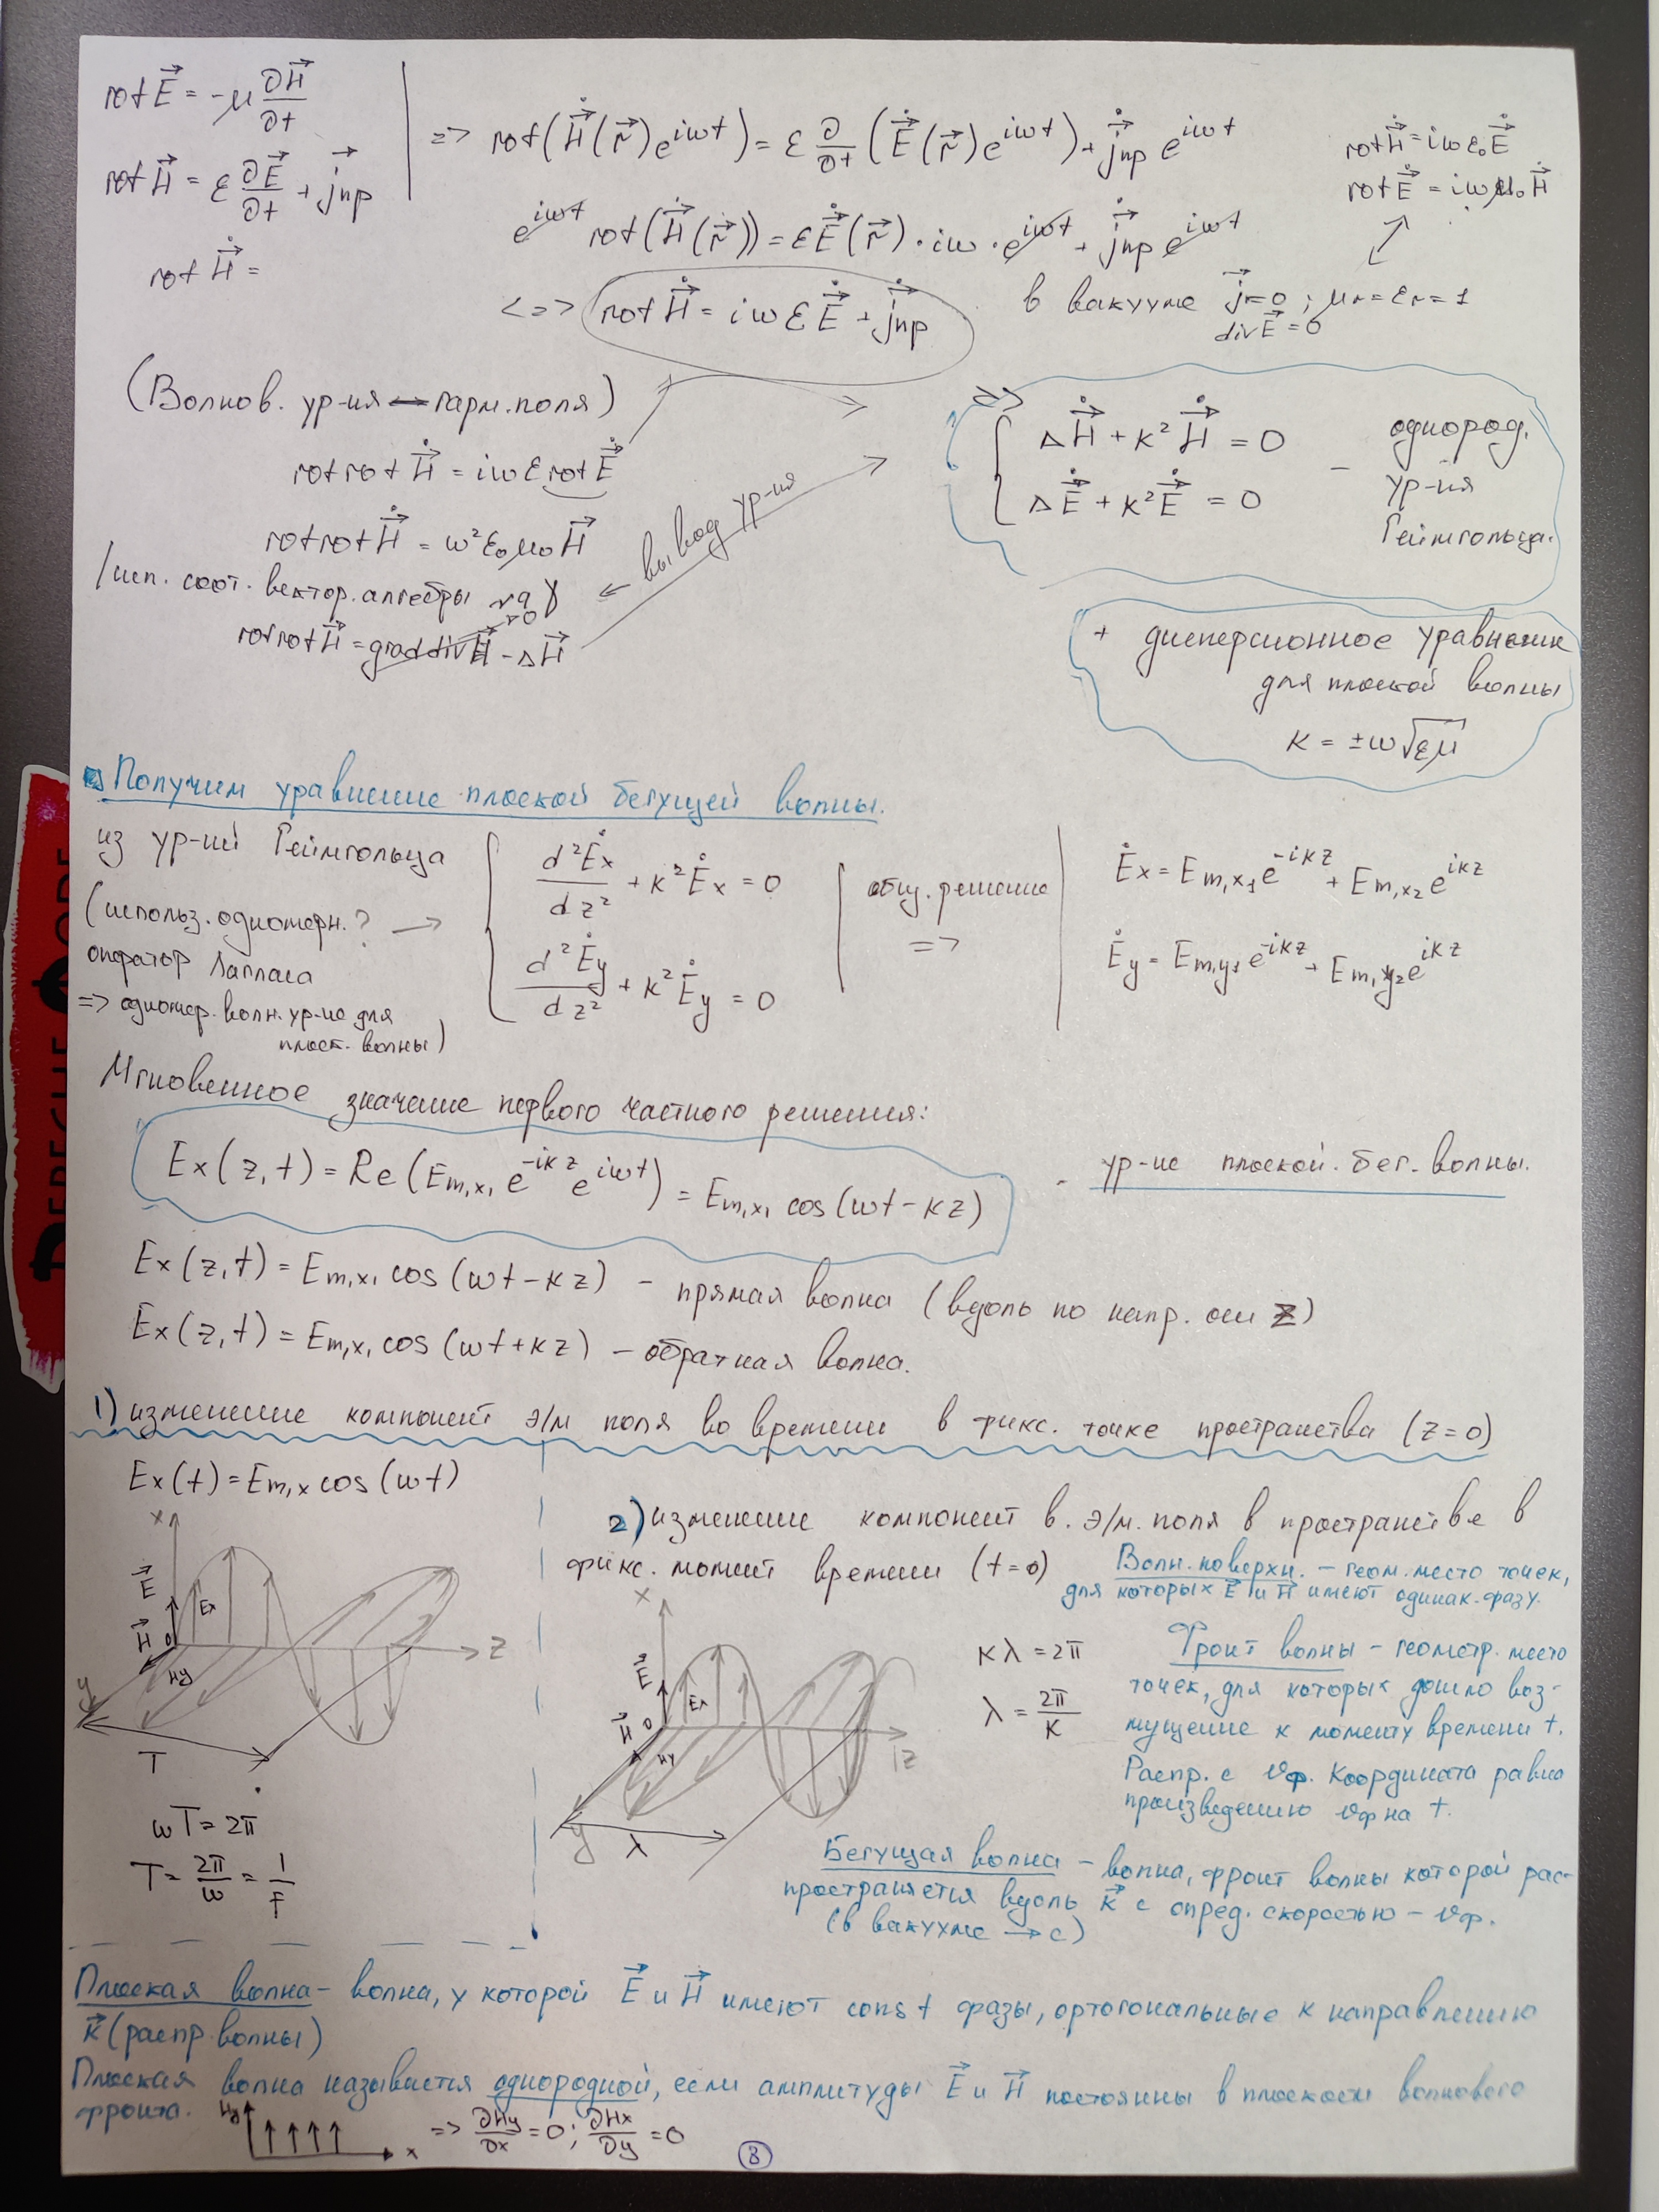 rot E⃗ = -μ ∂H⃗/∂t
rot H⃗ = ε ∂E⃗/∂t + j⃗пр
rot Ḣ⃗ =
=> rot(Ḣ⃗(r⃗)e^{iωt}) = ε ∂/∂t (Ė⃗(r⃗)e^{iωt}) + j̇⃗пр e^{iωt}
e^{iωt} rot(Ḣ⃗(r⃗)) = εĖ⃗(r⃗)·iω·e^{iωt} + j̇⃗пр e^{iωt}
<=> rot Ḣ⃗ = iωεĖ⃗ + j̇⃗пр
rot Ḣ⃗ = iωε₀Ė⃗
rot Ė⃗ = iωμ₀Ḣ⃗
в вакууме j⃗=0; μr=εr=1
div E⃗ = 0
(Волнов. ур-ия ↔ гарм. поля)
rot rot Ḣ⃗ = iωε rot Ė⃗
rot rot Ḣ⃗ = ω²ε₀μ₀H⃗
/исп. соот. вектор. алгебры
rot rot H⃗ = grad div H⃗ - ΔH⃗
→0
← вывод ур-ия
=>
{ ΔḢ⃗ + k²Ḣ⃗ = 0
{ ΔĖ⃗ + k²Ė⃗ = 0
– однород.
ур-ия
Геймгольца.
+ дисперсионное уравнение
для плоской волны
k = ±ω√(εμ)
Получим уравнение плоской бегущей волны.
из ур-ий Геймгольца
(использ. одномерн.? →
оператор Лапласа
=> одномер. волн. ур-ие для
плоск. волны)
d²Ėx/dz² + k²Ėx = 0
d²Ėy/dz² + k²Ėy = 0
общ. решение
=>
Ėx = Em,x₁e^{-ikz} + Em,x₂e^{ikz}
Ėy = Em,y₁e^{-ikz} + Em,y₂e^{ikz}
Мгновенное значение первого частного решения:
Ex(z,t) = Re(Em,x₁ e^{-ikz} e^{iωt}) = Em,x₁ cos(ωt-kz)
- ур-ие плоской. бег. волны.
Ex(z,t) = Em,x₁ cos(ωt-kz) – прямая волна (вдоль по напр. оси z)
Ex(z,t) = Em,x₁ cos(ωt+kz) – обратная волна.
1) изменение компонент э/м поля во времени в фикс. точке пространства (z=0)
Ex(t) = Em,x cos(ωt)
x
E⃗
Ex
H⃗
0
Hy
y
z
T
ωT = 2π
T = 2π/ω = 1/f
2) изменение компонент в. э/м. поля в пространстве в
фикс. момент времени (t=0)
Волн. поверхн. – геом. место точек,
для которых E⃗ и H⃗ имеют одинак. фазу.
x
E⃗
Ex
H⃗
0
Hy
y
z
λ
kλ = 2π
λ = 2π/k
Фронт волны – геометр. место
точек, для которых дошло воз-
мущение к моменту времени t.
Распр. с vф. Координата равна
произведению vф на t.
Бегущая волна – волна, фронт волны которой рас-
пространяется вдоль k⃗ с опред. скоростью – vф.
(в вакууме → c)
Плоская волна – волна, у которой E⃗ и H⃗ имеют const фазы, ортогональные к направлению
k⃗ (распр. волны)
Плоская волна называется однородной, если амплитуды E⃗ и H⃗ постоянны в плоскости волнового
фронта.
Hy
x
=> ∂Hy/∂x = 0; ∂Hx/∂y = 0
8